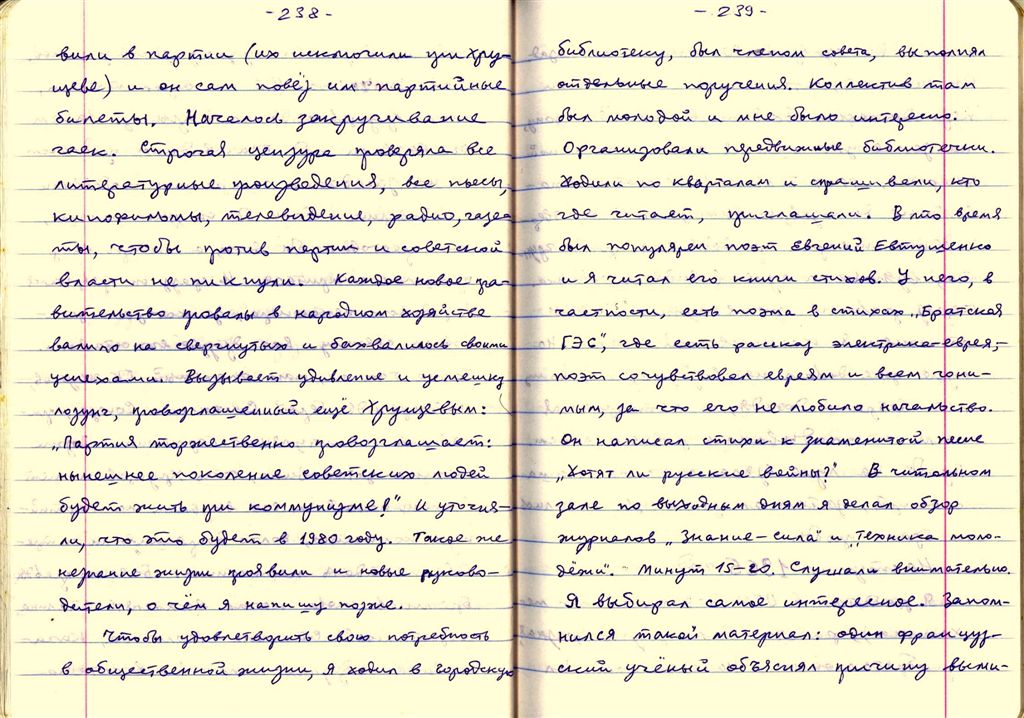 - 238 -
вили в партии (их исключили при Хру-
щеве) и он сам повёз им партийные
билеты. Началось закручивание
гаек. Строгая цензура проверяла все
литературные произведения, все пьесы,
кинофильмы, телевидение, радио, газе-
ты, чтобы против партии и советской
власти не пикнули. Каждое новое пра-
вительство провалы в народном хозяйстве
валило на свергнутых и бахвалилось своими
успехами. Вызывает удивление и усмешку
лозунг, провозглашенный ещё Хрущевым:
„Партия торжественно провозглашает:
нынешнее поколение советских людей
будет жить при коммунизме!" И уточня-
ли, что это будет в 1980 году. Такое же
незнание жизни проявили и новые руково-
дители, о чём я напишу позже.
Чтобы удовлетворить свою потребность
в общественной жизни, я ходил в городскую
- 239 -
библиотеку, был членом совета, выполнял
отдельные поручения. Коллектив там
был молодой и мне было интересно.
Организовали передвижные библиотечки.
Ходили по кварталам и спрашивали, кто
где читает, приглашали. В то время
был популярен поэт Евгений Евтушенко
и я читал его книги стихов. У него, в
частности, есть поэма в стихах „Братская
ГЭС", где есть рассказ электрика-еврея,-
поэт сочувствовал евреям и всем гони-
мым, за что его не любило начальство.
Он написал стихи к знаменитой песне
„Хотят ли русские войны?" В читальном
зале по выходным дням я делал обзор
журналов „Знание-сила" и „Техника моло-
дёжи". Минут 15-20. Слушали внимательно.
Я выбирал самое интересное. Запом-
нился такой материал: один француз-
ский учёный объяснял причину выми-